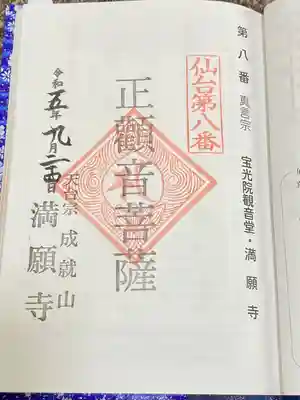 第八番 真言宗 宝光院觀音堂・満願寺
仙台第八番
正觀音菩薩
天台宗 成就山
満願寺
令和五年九月